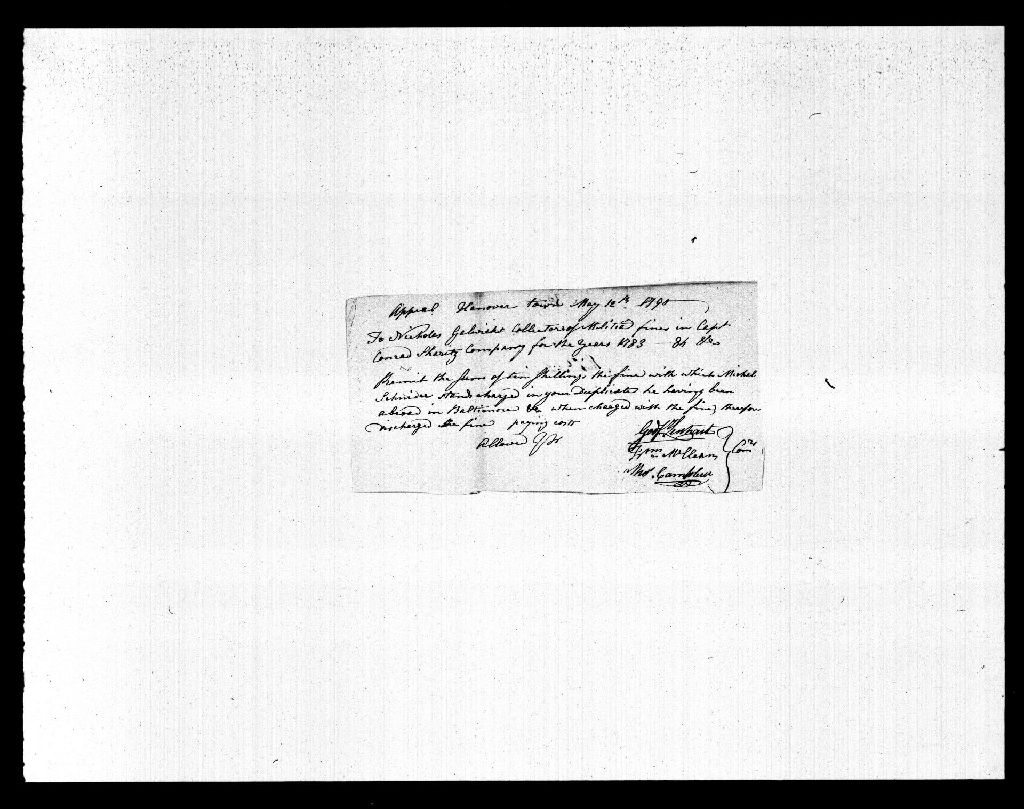 Appeal Hanover town May 12th 1790
To Nicholas Gelwicks Collector of Militia fines in Capt.
Conrad Sheretz Company for the Years 1783 - 84 &c
Remit the Sum of ten Shillings the fine with which Michael
Schnider stands charged in your Duplicate he having been
abroad in Baltimore &c when charged with the fine, therefor
discharged the fine paying costs
Allowed
Wm McClean Comrs
Thos. Campbell